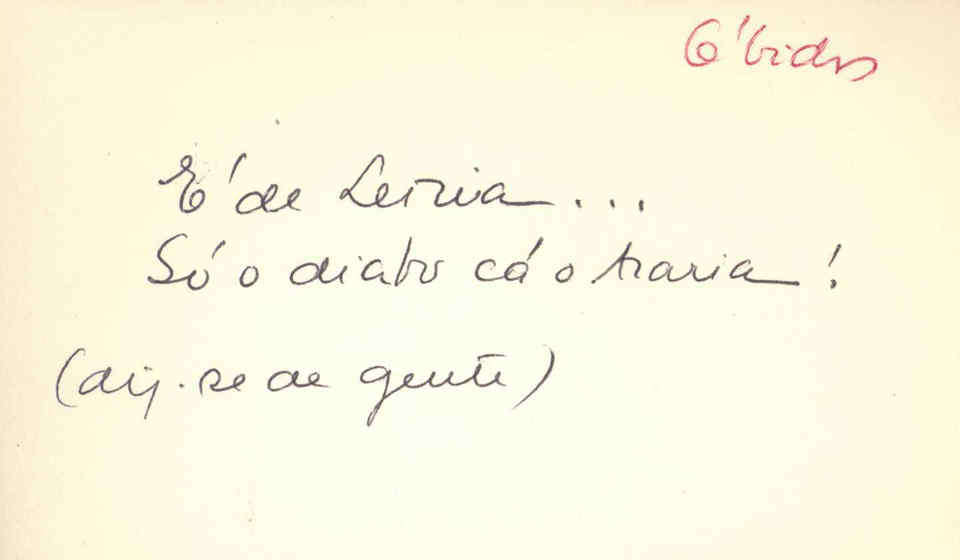 Óbidos
É de Leiria...
Só o diabo cá o traria!
(diz-se de gente)